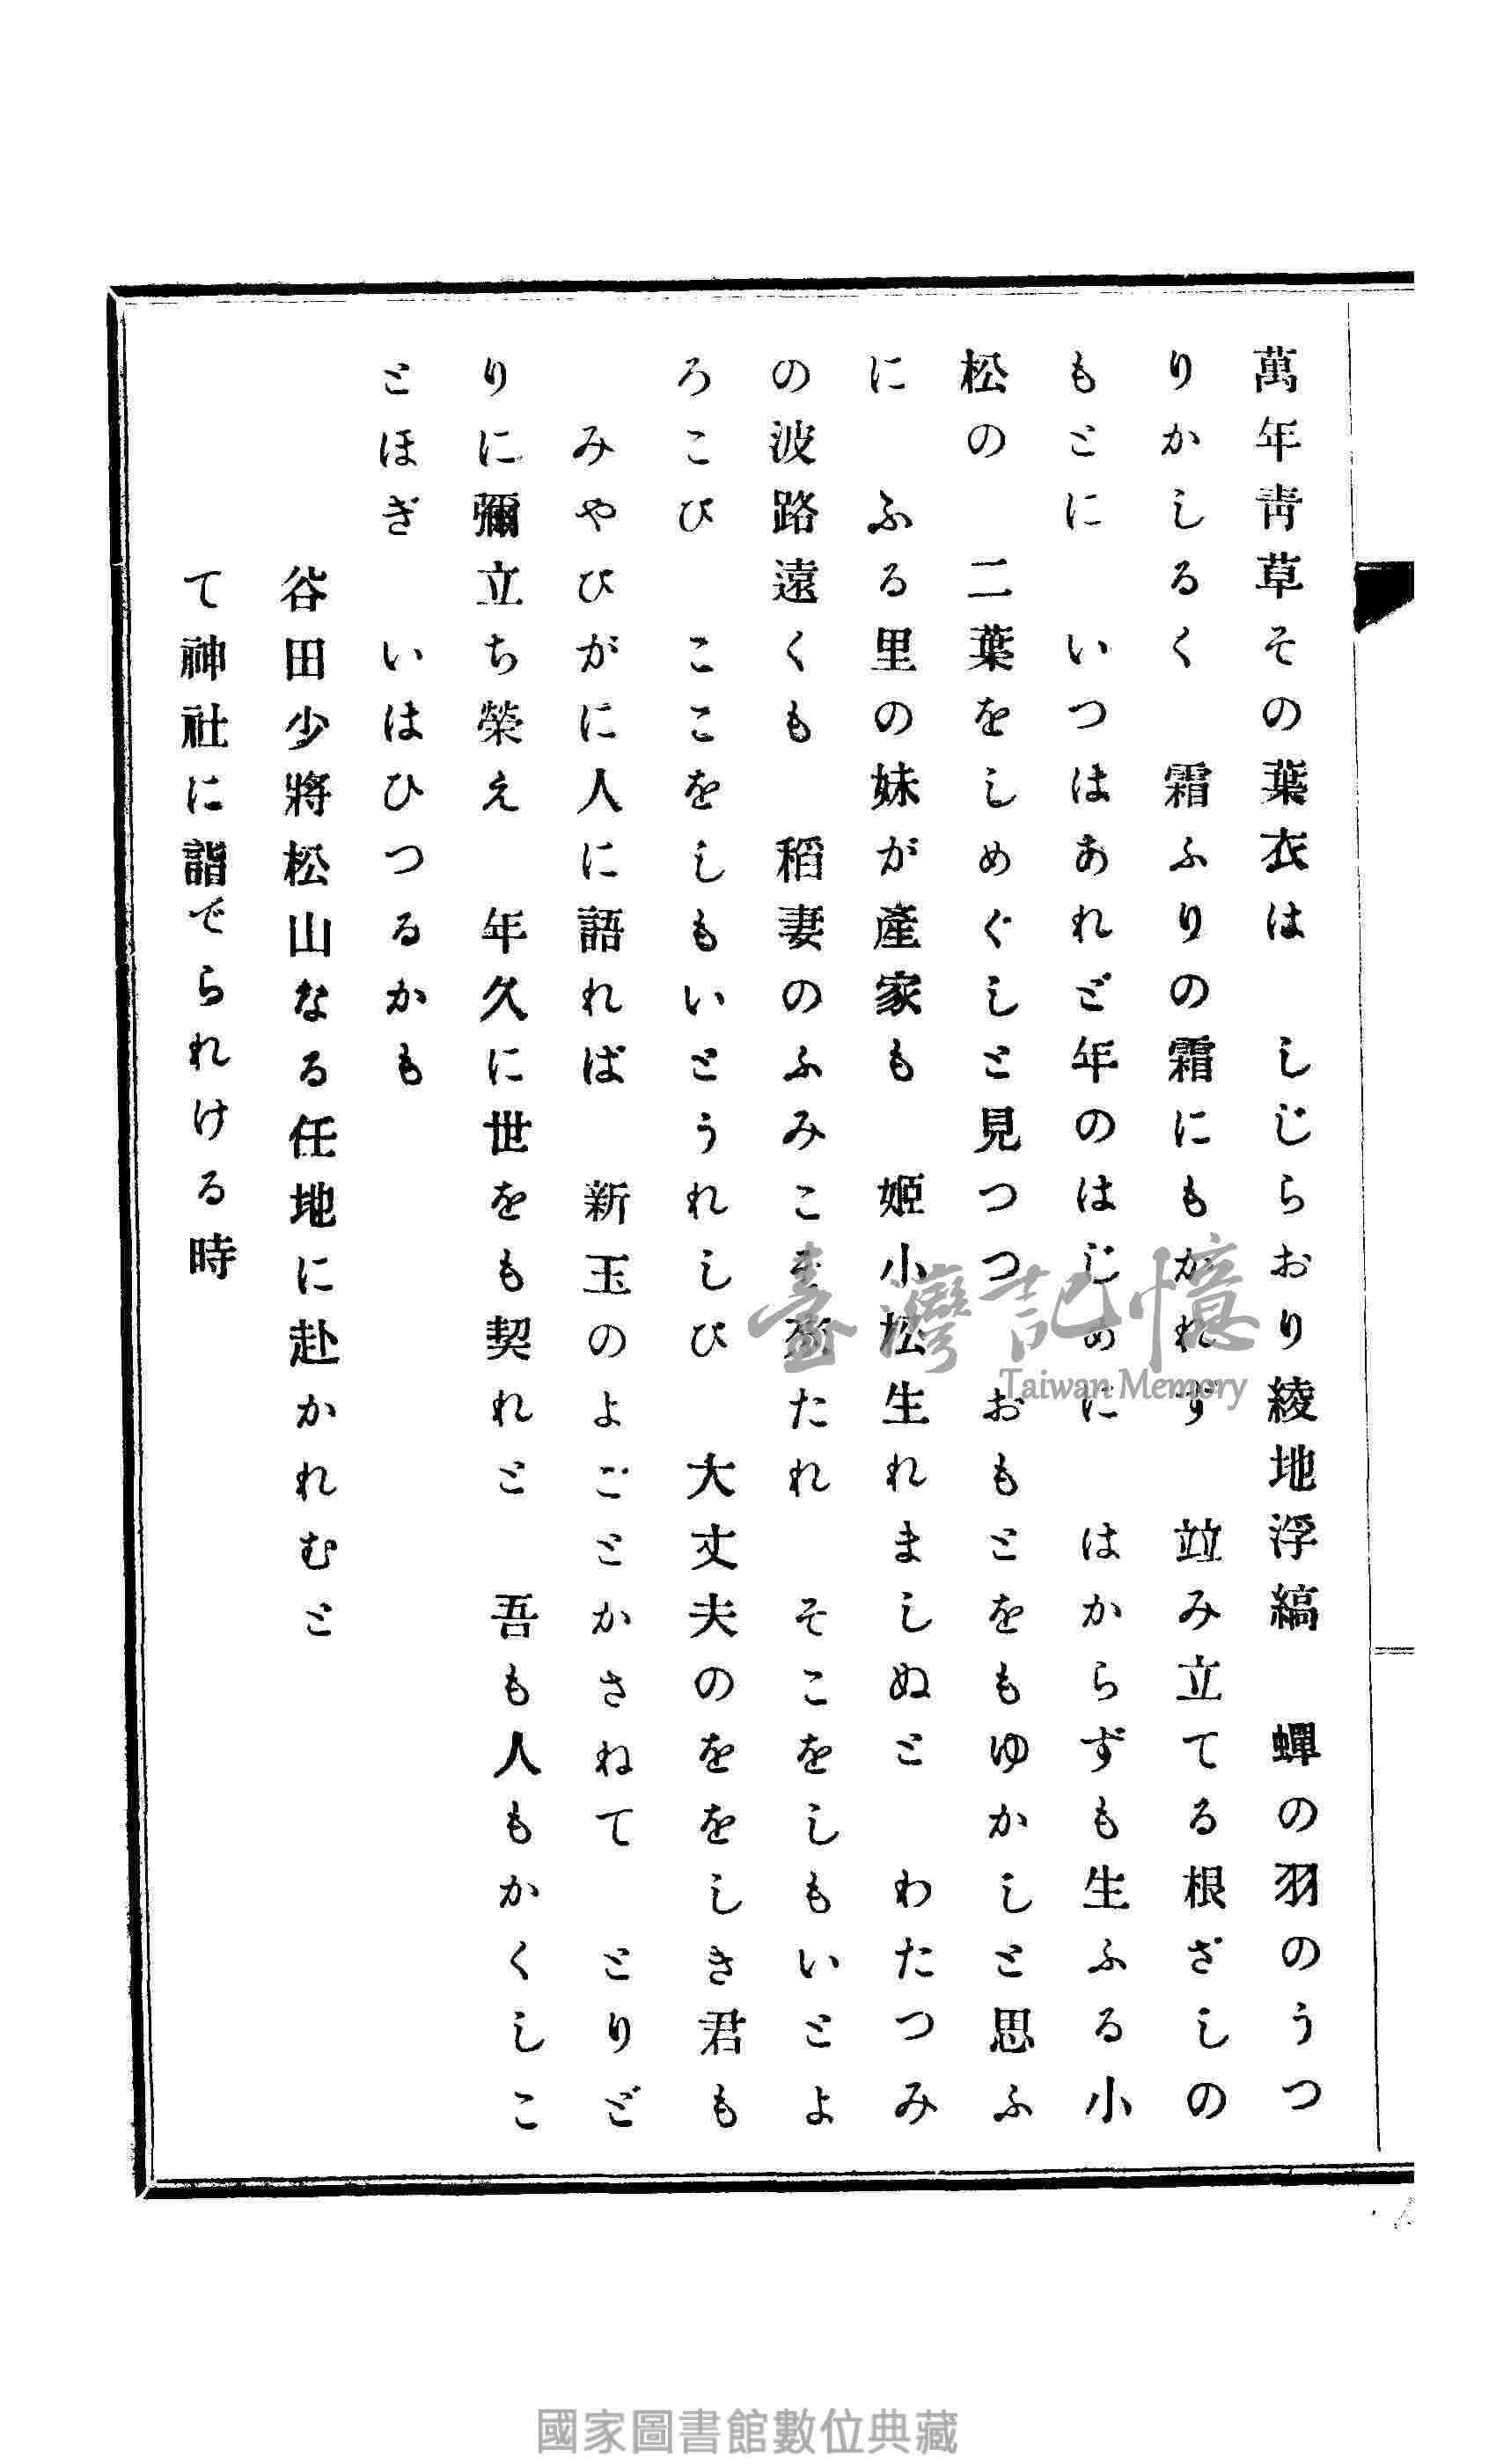 萬年靑草その葉衣は　しじらおり綾地浮縞　蟬の羽のうつ
りかしるく　霜ふりの霜にもかれず　竝み立てる根ざしの
もとに　いつはあれど年のはじめに　はからずも生ふる小
松の　二葉をしめぐしと見つつ　おもとをもゆかしと思ふ
に　ふる里の妹が產家も　姬小松生れましぬと　わたつみ
の波路遠くも　稻妻のふみこ　たれ　そこをしもいとよ
ろこび　ここをしもいとうれしび　大丈夫のををしき君も
みやびがに人に語れば　新玉のよごとかさねて　とりど
りに彌立ち榮え　年久に世をも契れと　吾も人もかくしこ
とほぎ　いはひつるかも
谷田少將松山なる任地に赴かれむと
て神社に詣でられける時
臺灣記憶
Taiwan Memory
國家圖書館數位典藏